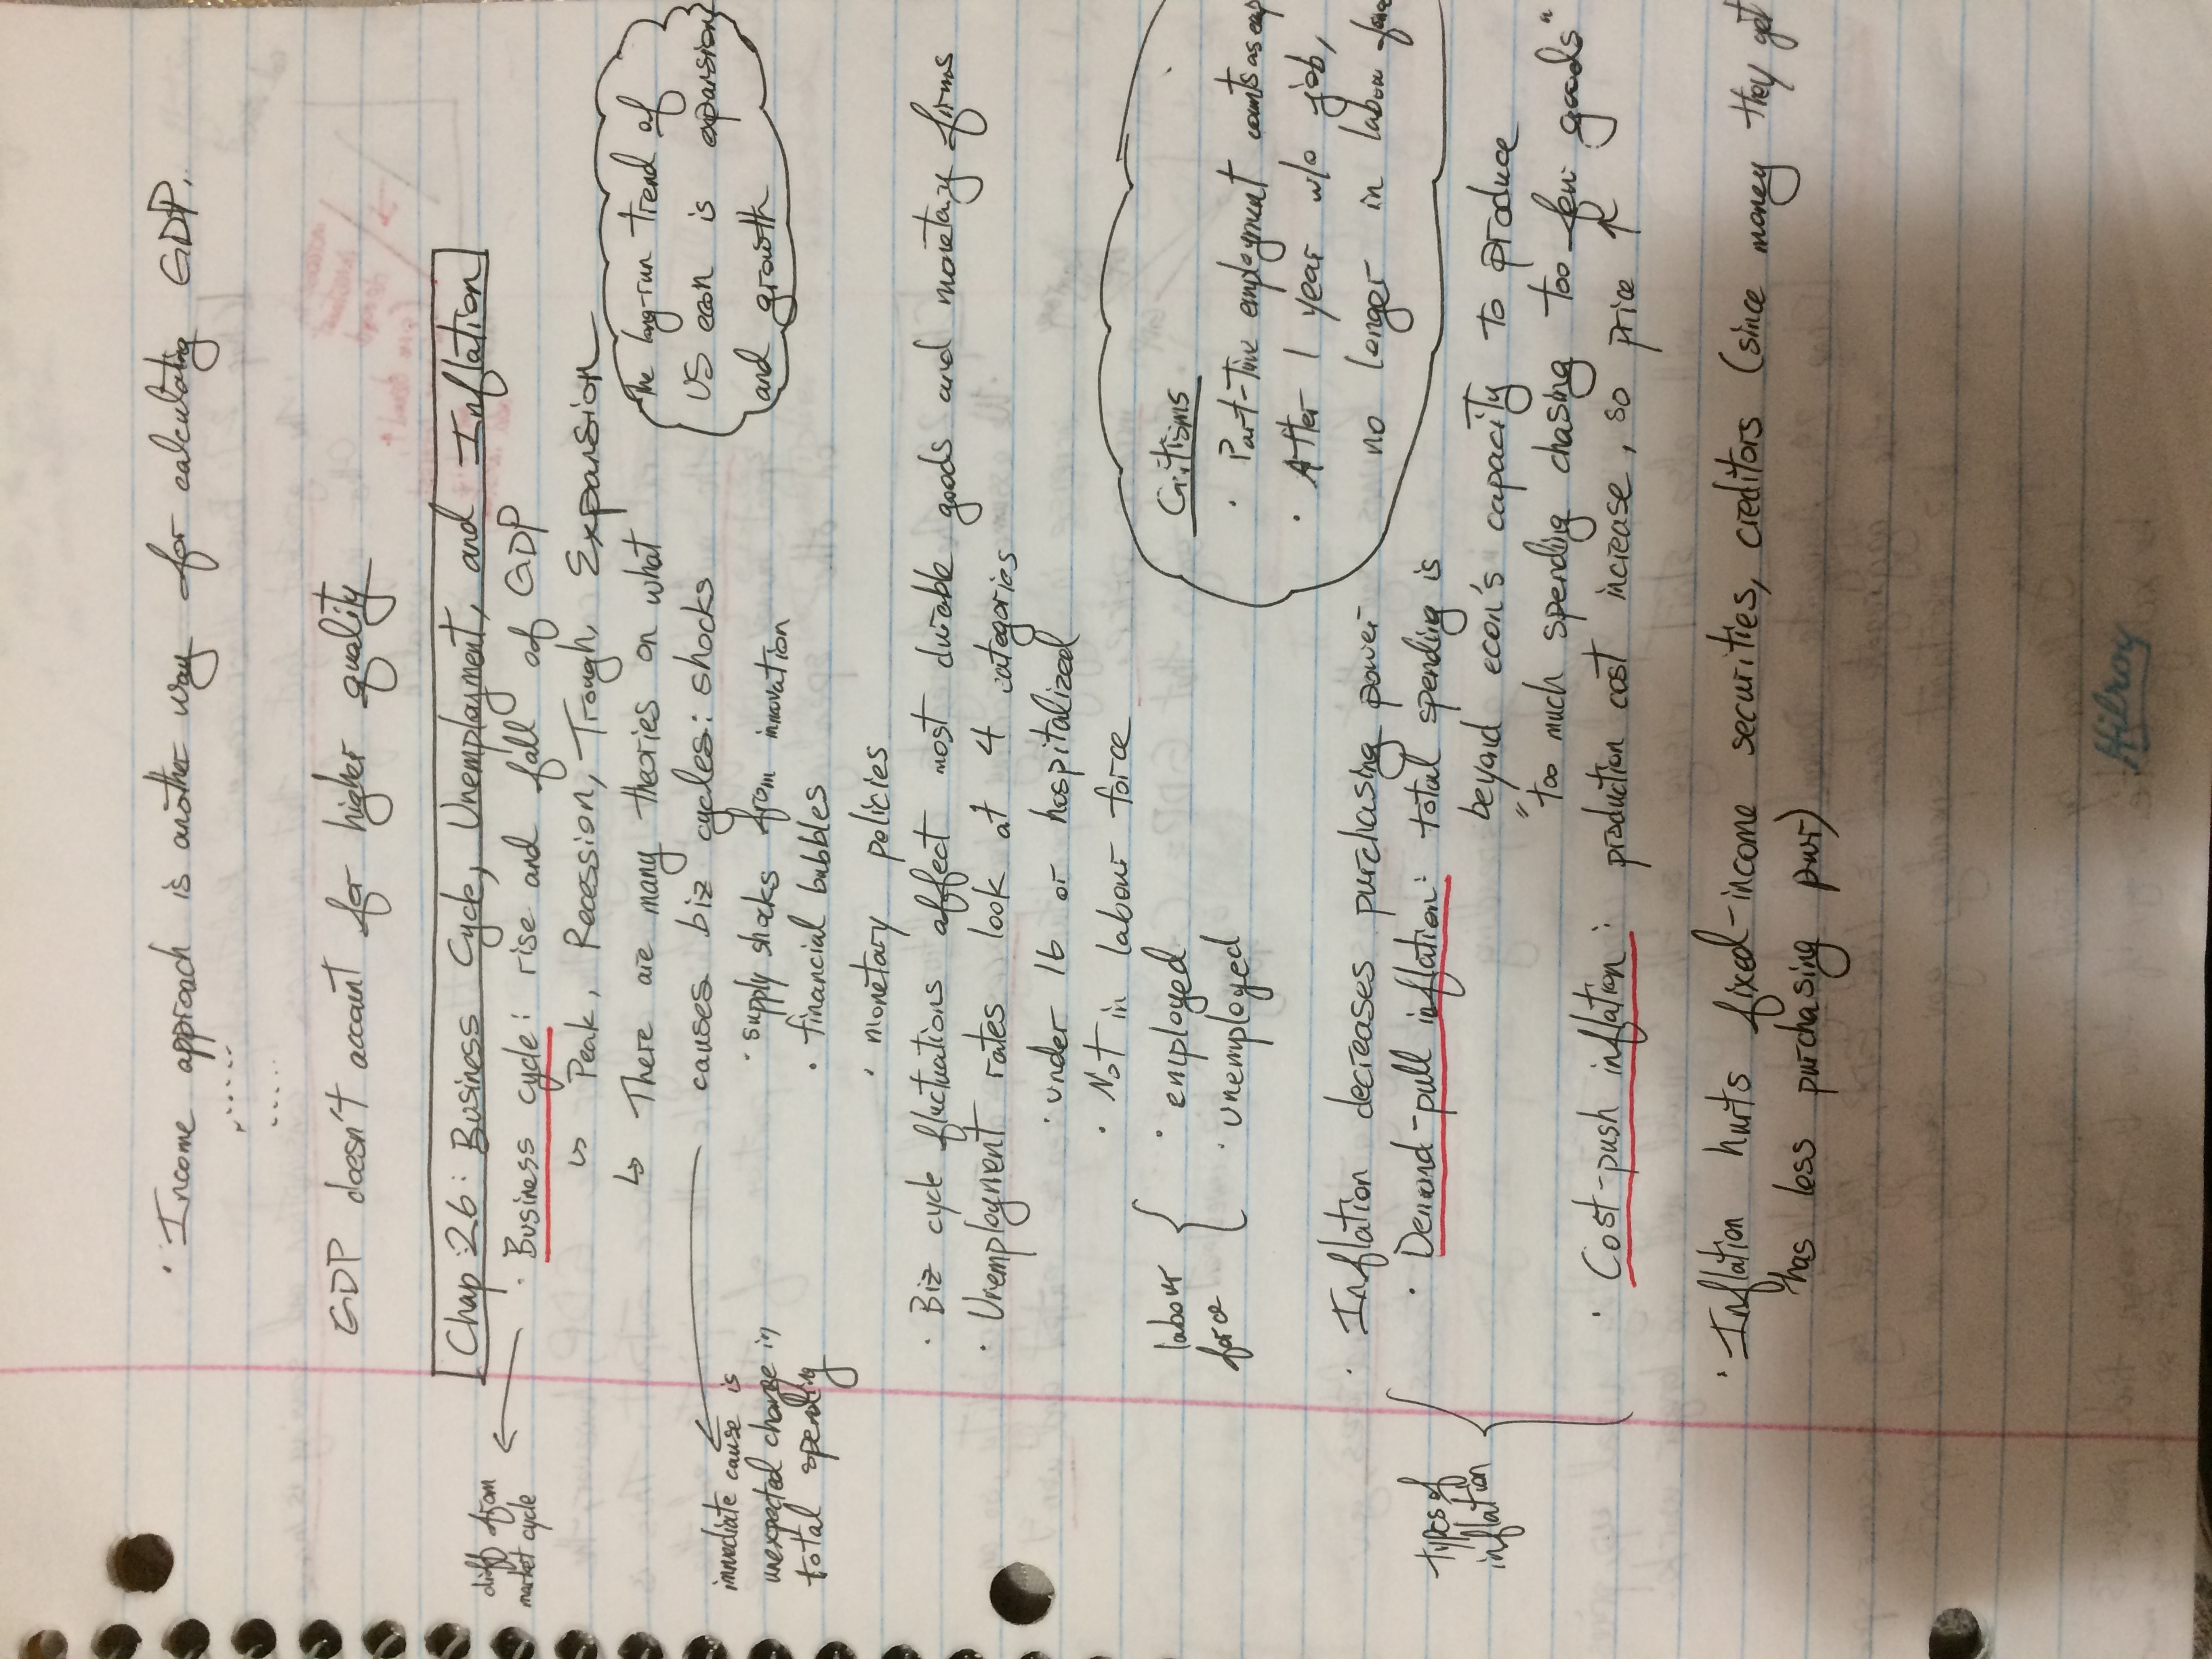 · Income approach is another way for calculating GDP.
GDP doesn't account for higher quality
Chap 26: Business Cycle, Unemployment, and Inflation
diff from
market cycle
· Business cycle: rise and fall of GDP
↳ Peak, Recession, Trough, Expansion
↳ There are many theories on what
causes biz cycles: shocks
The long-run trend of
US econ is expansion
and growth
immediate cause is
unexpected change in
total spending
· supply shocks from innovation
· financial bubbles
· monetary policies
· Biz cycle fluctuations affect most durable goods and monetary firms
· Unemployment rates look at 4 categories
· under 16 or hospitalized
· Not in labour force
labour
force
· employed
· unemployed
Critisms
· Part-Time employment counts as emp
· After 1 year w/o job,
no longer in labour force
· Inflation decreases purchasing power
types of
inflation
· Demand-pull inflation: total spending is
beyond econ's capacity to produce
"too much spending chasing too few goods"
· Cost-push inflation: production cost increase, so price ↑
· Inflation hurts fixed-income securities, creditors (since money they get
has less purchasing pwr)
Hilroy